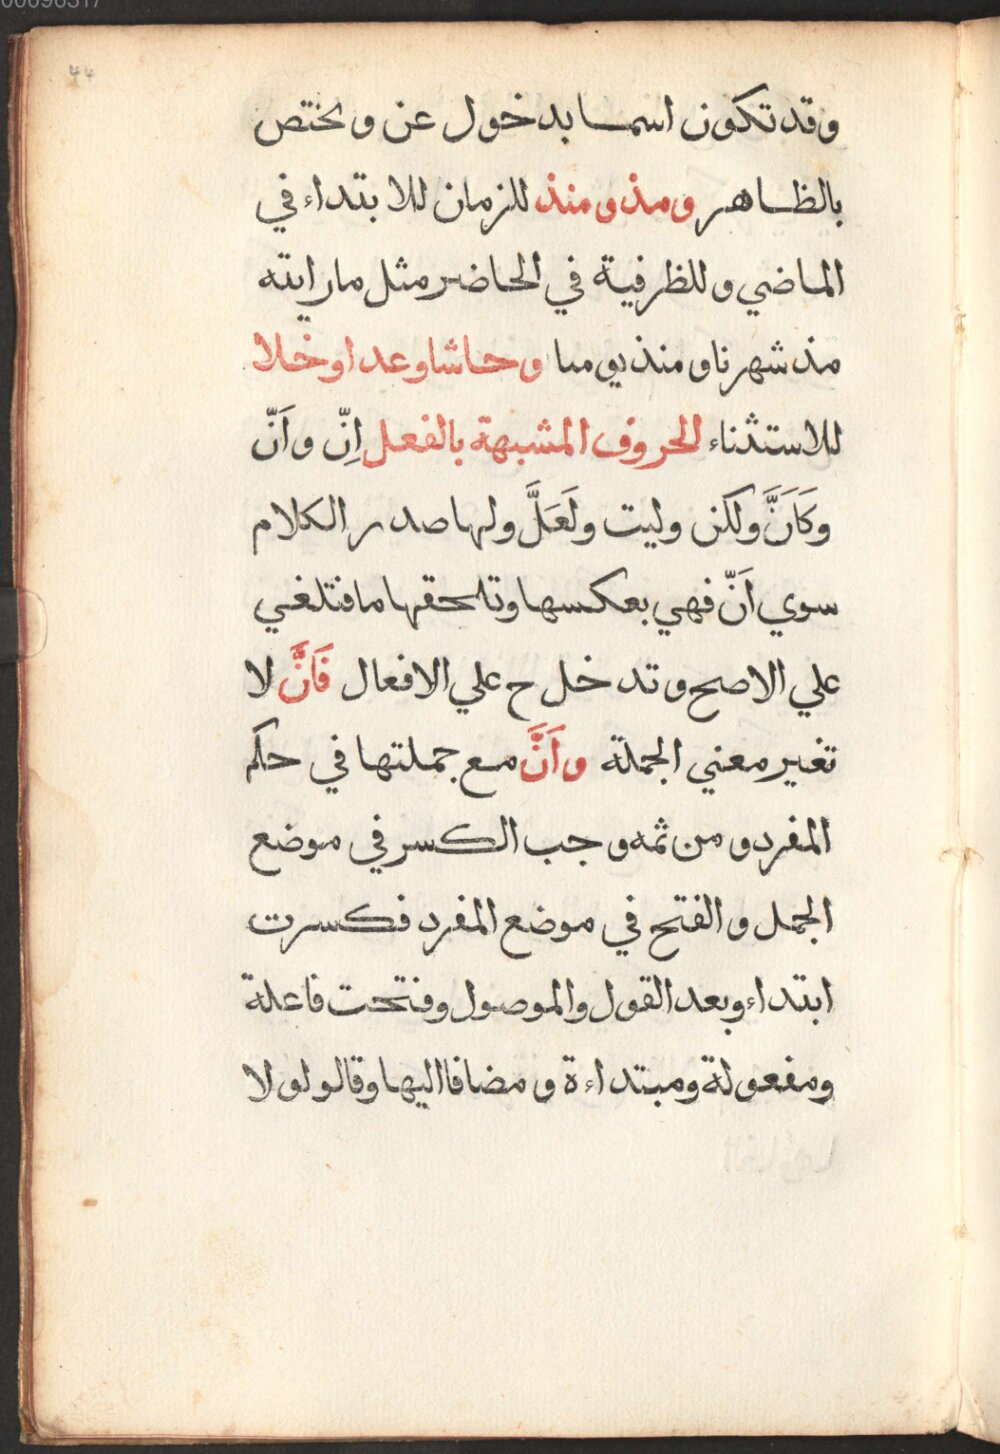 وقد تكون اسما بدخول عن ويختص
بالظاهر ومذ ومنذ للزمان للابتداء في
الماضي وللظرفية في الحاضر مثل مارايته
مذ شهرنا ومنذ يومنا وحاشا وعدا وخلا
للاستثناء الحروف المشبهة بالفعل اِنّ واَنّ
وكَاَنَّ ولكن وليت ولَعَلَّ ولها صدر الكلام
سوي اَنّ فهي بعكسها وتلحقها ما فتلغي
علي الاصح وتدخل ح علي الافعال فَانَّ لا
تغير معني الجملة واَنَّ مع جملتها في حكم
المفرد ومن ثمه وجب الكسر في موضع
الجمل والفتح في موضع المفرد فكسرت
ابتداء وبعد القول والموصول وفتحت فاعلة
ومفعولة ومبتداءة ومضافا اليها وقالو لولا